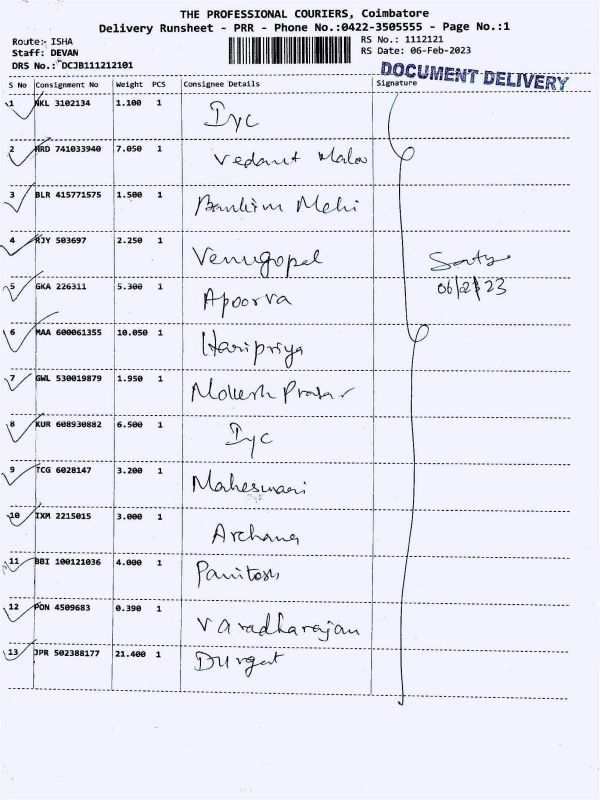 THE PROFESSIONAL COURIERS, Coimbatore
Delivery Runsheet - PRR - Phone No.:0422-3505555 - Page No.:1
Route:- ISHA
RS No.: 1112121
Staff: DEVAN
RS Date: 06-Feb-2023
DRS No.: DCJB111212101
DOCUMENT DELIVERY
S No Consignment No Weight PCS Consignee Details Signature
1 NKL 3102134 1.100 1 Iyc
2 HRD 741033940 7.050 1 Vedant
3 BLR 415771575 1.500 1
4 RJY 503697 2.250 1 Venugopal
06/2/23
5 GKA 226311 5.300 1 Apoorva
6 MAA 600061355 10.050 1 Haripriya
7 GWL 530019879 1.950 1
8 KUR 608930882 6.500 1 Iyc
9 TCG 6028147 3.200 1 Maheswari
10 IXM 2215015 3.000 1 Archana
11 BBI 100121036 4.000 1
12 PON 4509683 0.390 1 Varadharajan
13 JPR 502388177 21.400 1